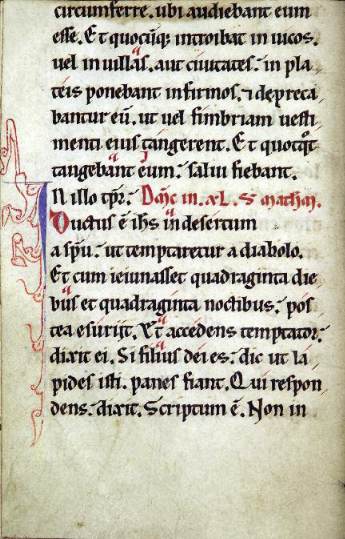 circumferre. ubi audiebant eum
esse. Et quocūq; introibat in uicos.
uel in uillas. aut ciuitates. in pla
teis ponebant infirmos. ⁊ depreca
bantur eū. ut uel fimbriam uesti
menti eius tangerent. Et quotq̇t
tangebant eum. salui fiebant.
IN illo tp̄r. Dn̄ic in xL. S matheū.
Ductus ē ihs in desertum
a spū. ut temptaretur a diabolo.
Et cum ieiunasset quadraginta die
bus et quadraginta noctibus. pos
tea esurijt. Et accedens temptator.
dixit ei. Si filius dei es. dic ut la
pides isti. panes fiant. Qui respon
dens. dixit. Scriptum ē. Non in